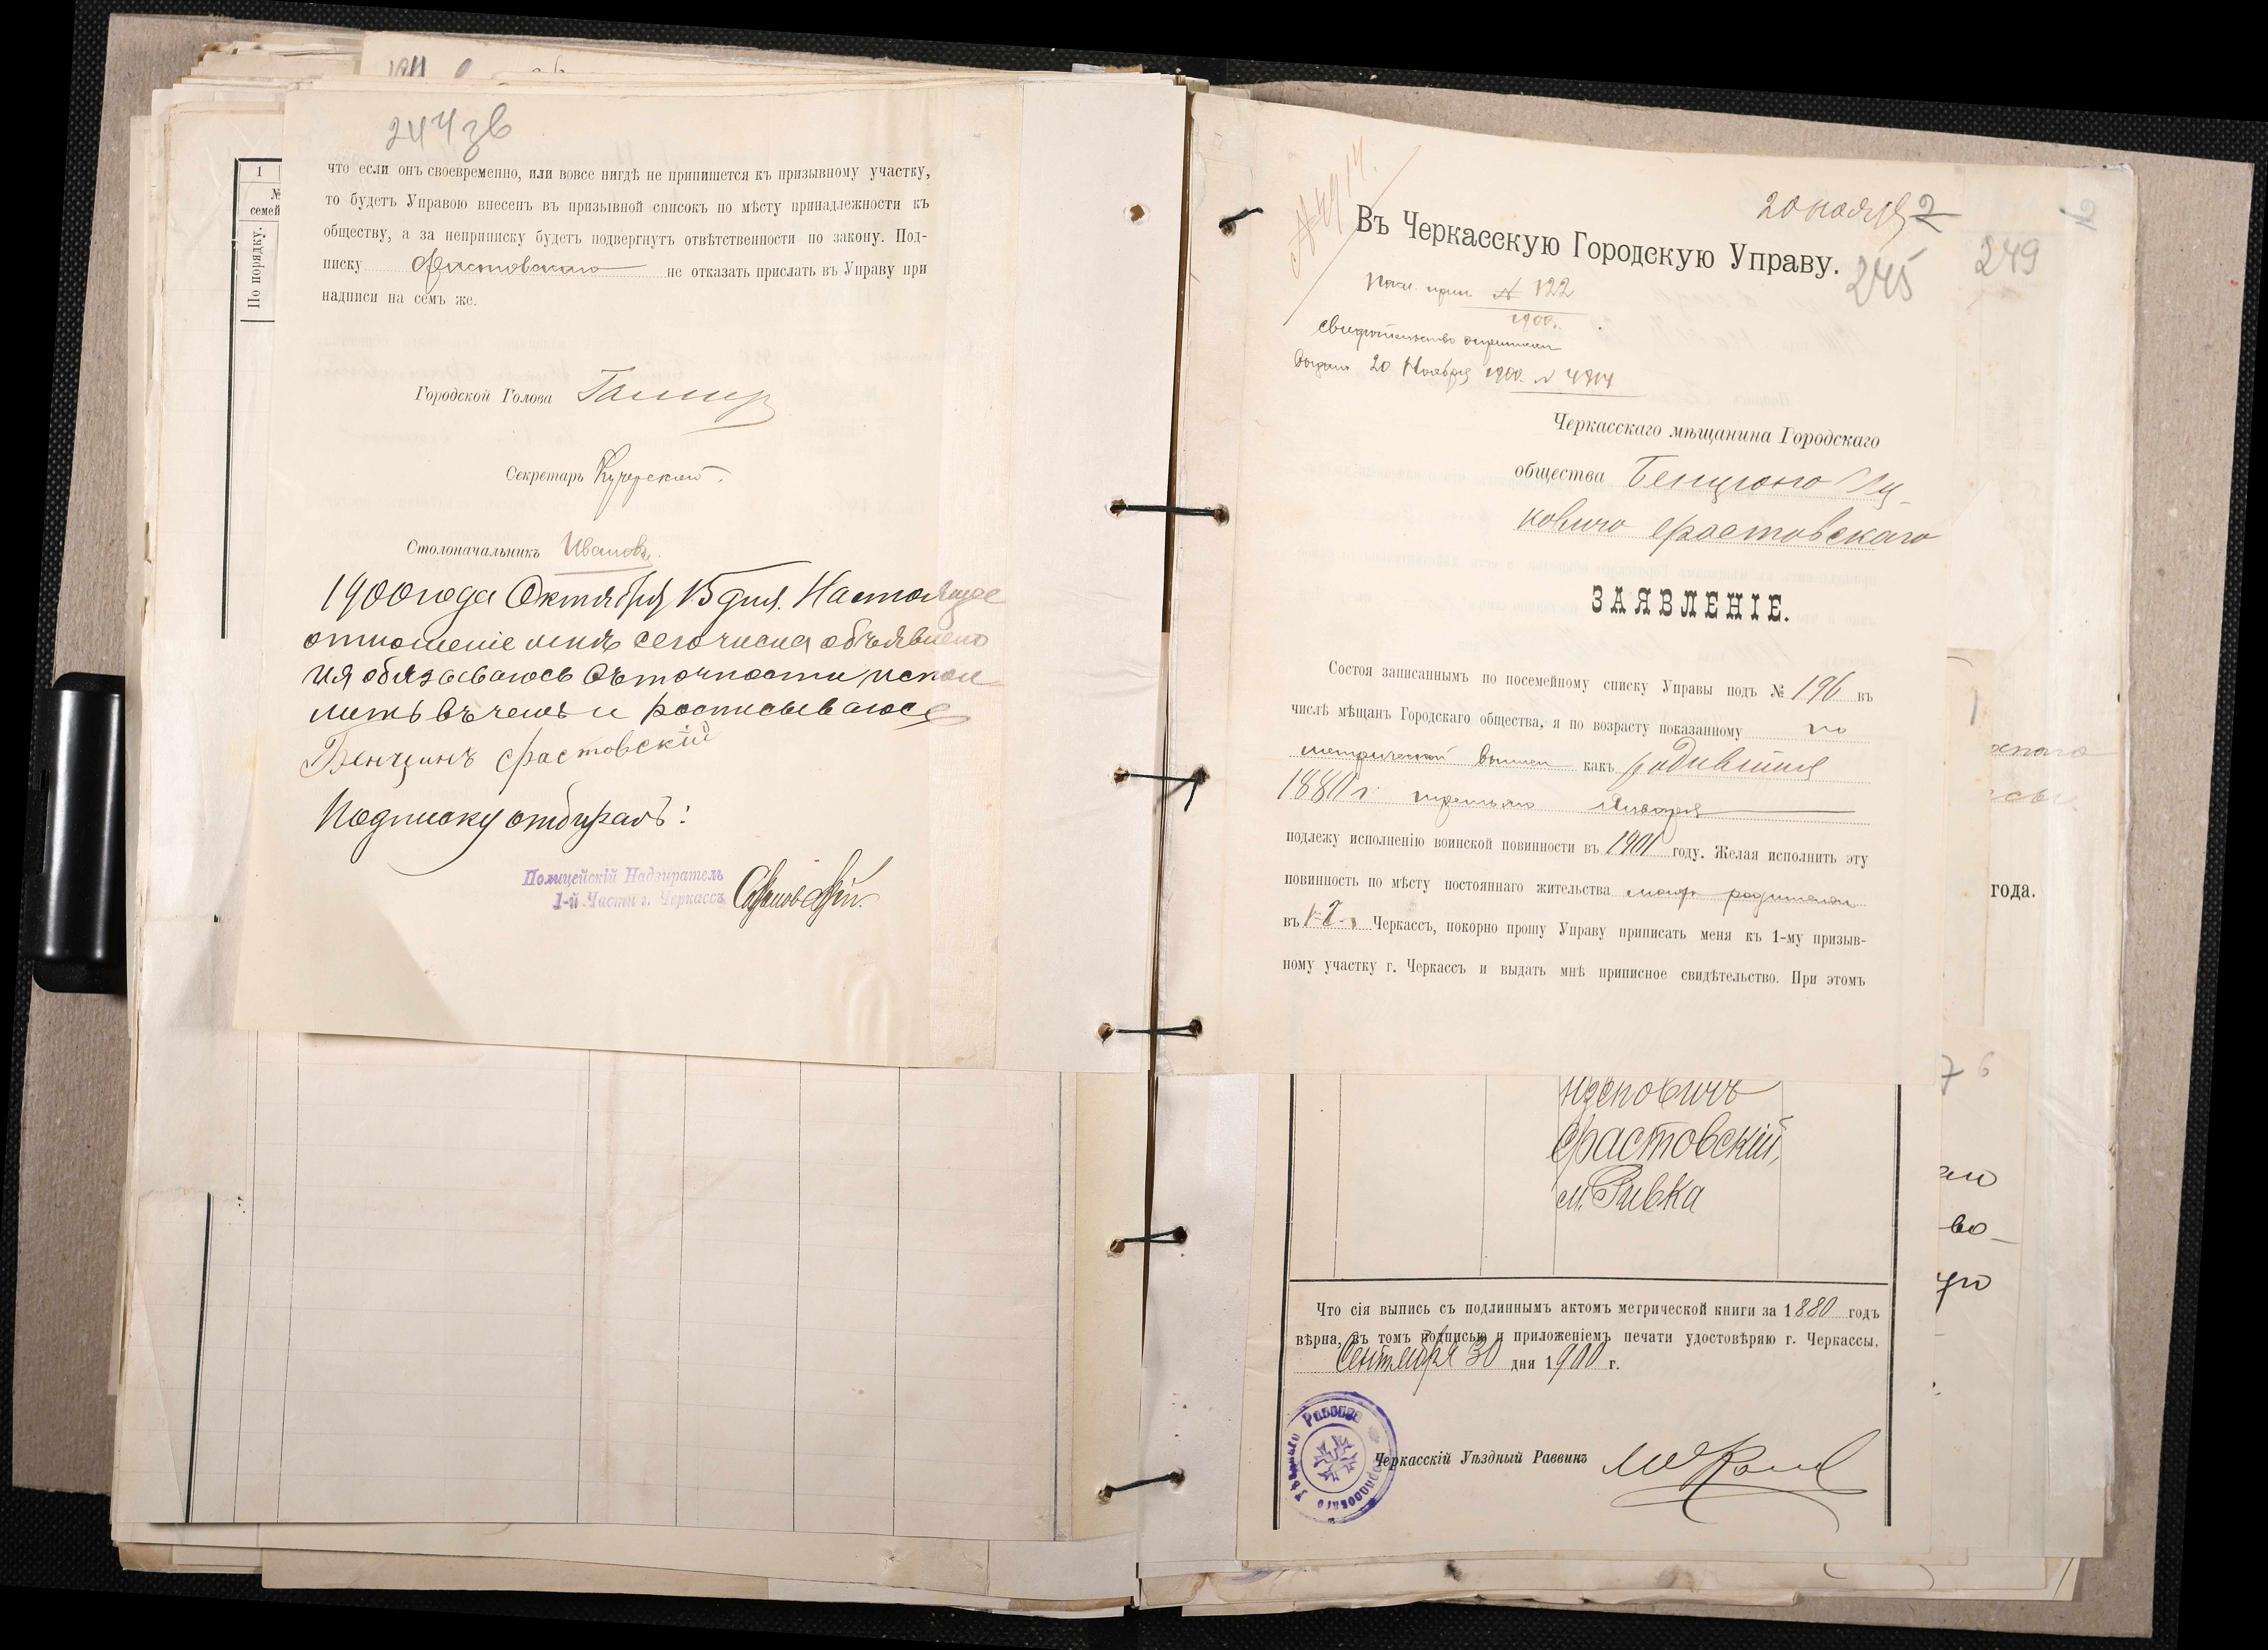 244 зв
что если онъ своевременно, или вовсе нигдѣ не припишется къ призывному участку,
то будетъ Управою внесенъ въ призывной списокъ по мѣсту принадлежности къ
обществу, а за неприписку будетъ подвергнутъ отвѣтственности по закону. Под-
писку Фастовскаго не отказать прислать въ Управу при
надписи на семъ же.
Городской Голова
Секретарь
Столоначальникъ Ивановъ.
1900 года Октября 15 дня. Настоящее
отношеніе мнѣ сего числа объявлено
и я обязываюсь въ точности испол-
нить въ чемъ и росписываюсь
Бенціинъ Фастовскій
Подписку отбиралъ:
Полицейскій Надзиратель
1-й Части г. Черкассъ
1
№
семей
По порядку.
№ 4914.
20 ноября 2
Въ Черкасскую Городскую Управу.
245
249
№ 122
1900.
свидѣтельство о припискѣ
выдано 20 Ноября 1900 № 4914
Черкасскаго мѣщанина Городскаго
общества Бенціона Иц-
ковича Фастовскаго
ЗАЯВЛЕНІЕ.
Состоя записаннымъ по посемейному списку Управы подъ № 196 въ
числѣ мѣщанъ Городскаго общества, я по возрасту показанному по
метрической выписи какъ родившійся
1880 г. третьяго Января
подлежу исполненію воинской повинности въ 1901 году. Желая исполнить эту
повинность по мѣсту постояннаго жительства моихъ родителей
въ г. Черкассъ, покорно прошу Управу приписать меня къ 1-му призыв-
ному участку г. Черкассъ и выдать мнѣ приписное свидѣтельство. При этомъ
Фастовскій,
м. Ривка
Что сія выпись съ подлиннымъ актомъ метрической книги за 1880 годъ
вѣрна, въ томъ подписью и приложеніемъ печати удостовѣряю г. Черкассы.
Сентября 30 дня 1900 г.
Черкасскій Уѣздный Раввинъ
года.
76
во-